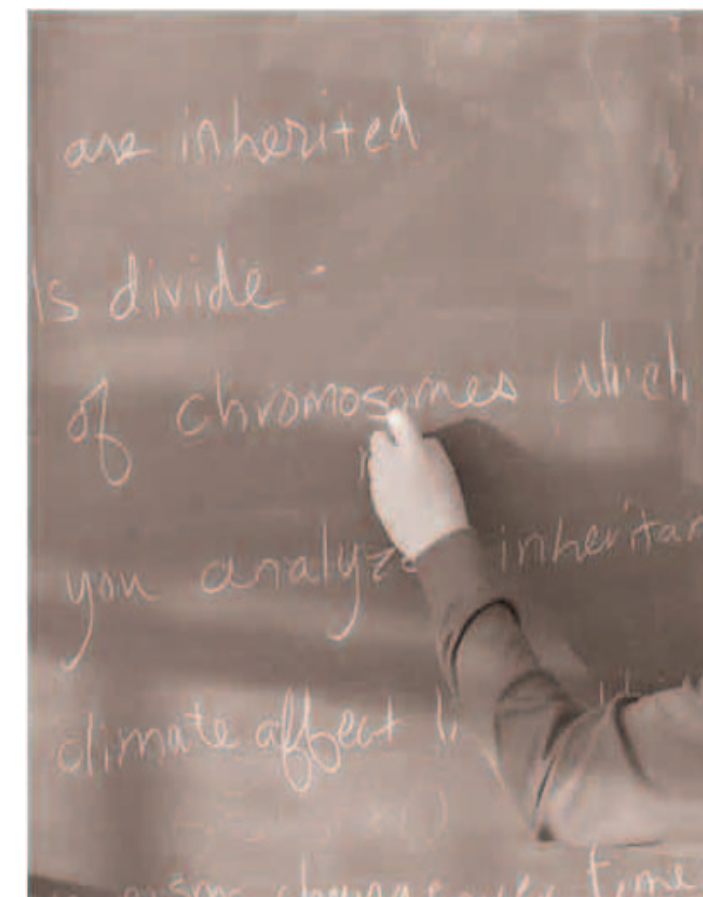 are inherited
ls divide.
of chromosomes which
you analyze inheritan
climate affect
change over time